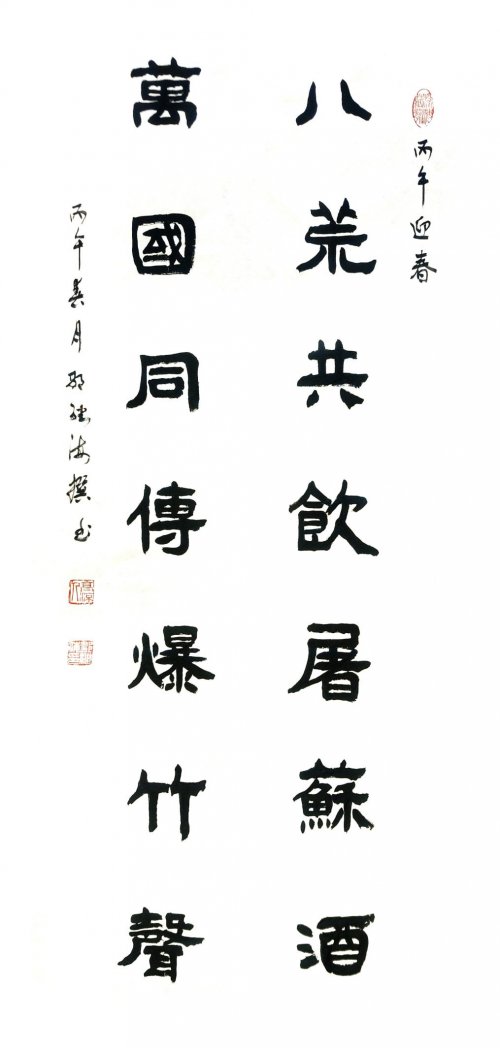 丙午迎春
八荒共飲屠蘇酒
萬國同傳爆竹聲
丙午春月 海撰书